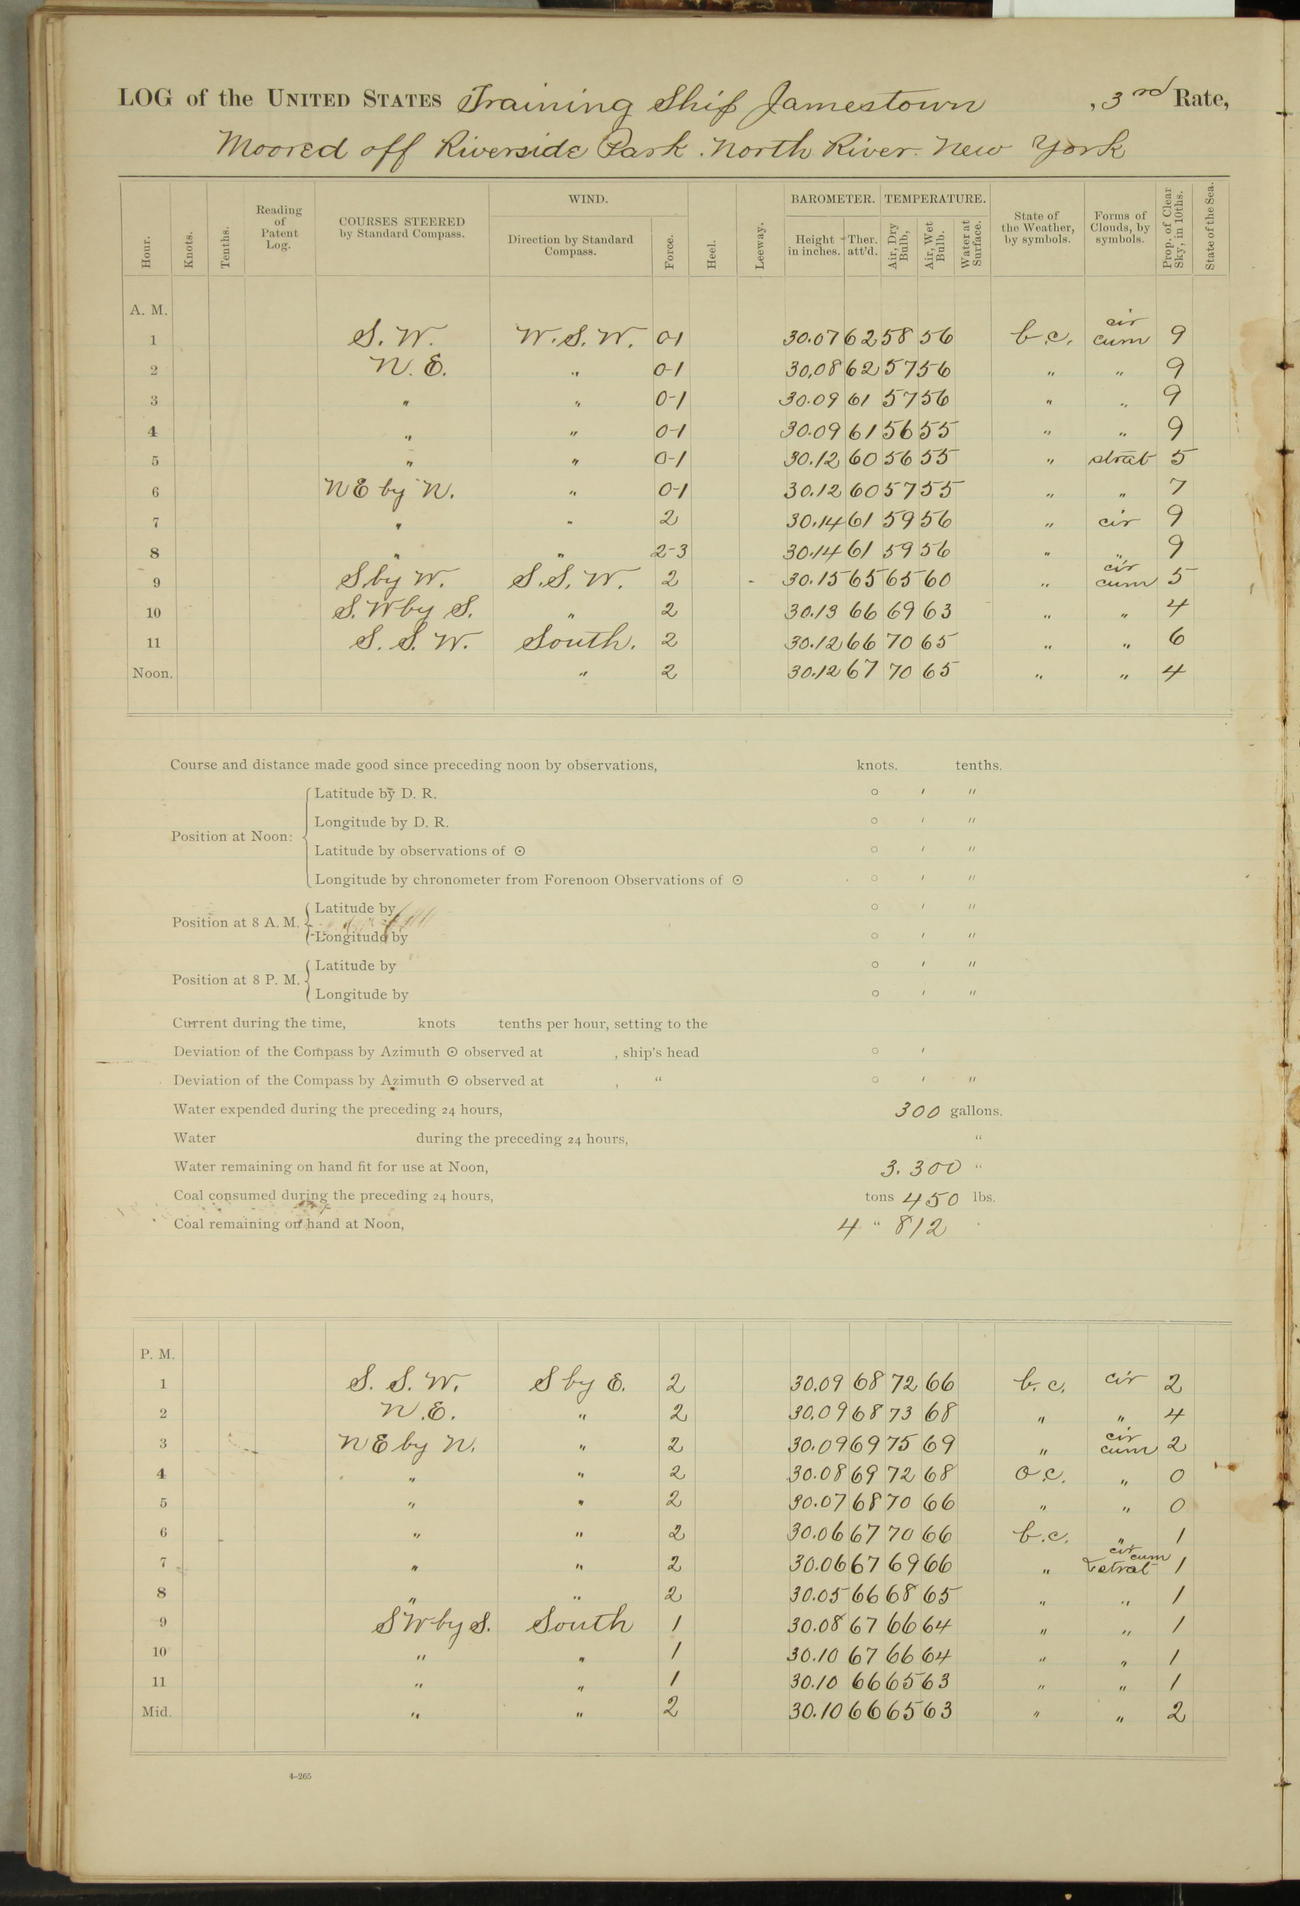 LOG of the UNITED STATES Training Ship Jamestown , 3rd Rate,
Moored off Riverside Park. North River. New York
Hour. Knots. Tenths. Reading of Patent Log. COURSES STEERED by Standard Compass. WIND. Direction by Standard Compass. Force. Heel. Leeway. BAROMETER. Height in inches. Ther. att'd. TEMPERATURE. Air, Dry Bulb, Air, Wet Bulb. Water at Surface. State of the Weather, by symbols. Forms of Clouds, by symbols. Prop. of Clear Sky, in 10ths. State of the Sea.
A. M.
1 S. W. W. S. W. 0-1 30.07 62 58 56 b.c. cir cum 9
2 N. E. " 0-1 30.08 62 57 56 " " 9
3 " " 0-1 30.09 61 57 56 " " 9
4 " " 0-1 30.09 61 56 55 " " 9
5 " " 0-1 30.12 60 56 55 " strat 5
6 NE by N. " 0-1 30.12 60 57 55 " " 7
7 " " 2 30.14 61 59 56 " cir 9
8 " " 2-3 30.14 61 59 56 " " 9
9 S by W. S. S. W. 2 30.15 65 65 60 " cir cum 5
10 S. W by S. " 2 30.13 66 69 63 " " 4
11 S. S. W. South. 2 30.12 66 70 65 " " 6
Noon. " 2 30.12 67 70 65 " " 4
Course and distance made good since preceding noon by observations, knots. tenths.
Position at Noon: Latitude by D. R. ○ ′ ″
Longitude by D. R. ○ ′ ″
Latitude by observations of ⊙ ○ ′ ″
Longitude by chronometer from Forenoon Observations of ⊙ ○ ′ ″
Position at 8 A. M. Latitude by ○ ′ ″
Longitude by ○ ′ ″
Position at 8 P. M. Latitude by ○ ′ ″
Longitude by ○ ′ ″
Current during the time, knots tenths per hour, setting to the
Deviation of the Compass by Azimuth ⊙ observed at , ship's head ○ ′
Deviation of the Compass by Azimuth ⊙ observed at , " ○ ′ ″
Water expended during the preceding 24 hours, 300 gallons.
Water during the preceding 24 hours, "
Water remaining on hand fit for use at Noon, 3.300 "
Coal consumed during the preceding 24 hours, tons 450 lbs.
Coal remaining on hand at Noon, 4 " 812
P. M.
1 S. S. W. S by E. 2 30.09 68 72 66 b.c. cir 2
2 N.E. " 2 30.09 68 73 68 " " 4
3 NE by N. " 2 30.09 69 75 69 " cir cum 2
4 " " 2 30.08 69 72 68 o.c. " 0
5 " " 2 30.07 68 70 66 " " 0
6 " " 2 30.06 67 70 66 b.c. " 1
7 " " 2 30.06 67 69 66 " cir cum & strat 1
8 " " 2 30.05 66 68 65 " " 1
9 SW by S. South 1 30.08 67 66 64 " " 1
10 " " 1 30.10 67 66 64 " " 1
11 " " 1 30.10 66 65 63 " " 1
Mid. " " 2 30.10 66 65 63 " " 2
4-265